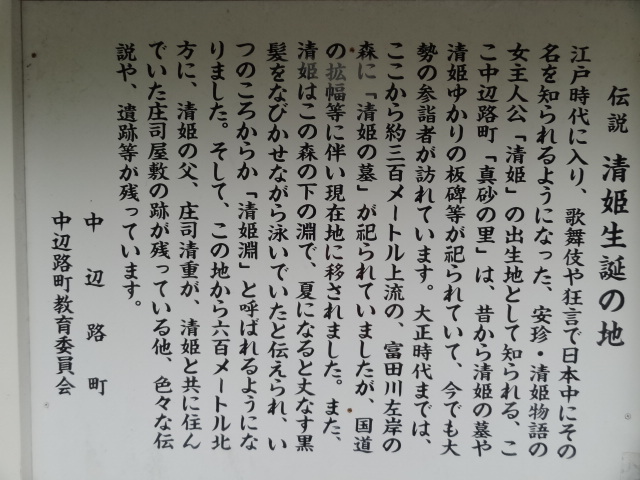 伝説 清姫生誕の地
江戸時代に入り、歌舞伎や狂言で日本中にその
名を知られるようになった、安珍・清姫物語の
女主人公「清姫」の出生地として知られる、こ
こ中辺路町「真砂の里」は、昔から清姫の墓や
清姫ゆかりの板碑等が祀られていて、今でも大
勢の参詣者が訪れています。大正時代までは、
ここから約三百メートル上流の、富田川左岸の
森に「清姫の墓」が祀られていましたが、国道
の拡幅等に伴い現在地に移されました。また、
清姫はこの森の下の淵で、夏になると丈なす黒
髪をなびかせながら泳いでいたと伝えられ、い
つのころからか「清姫淵」と呼ばれるようにな
りました。そして、この地から六百メートル北
方に、清姫の父、庄司清重が、清姫と共に住ん
でいた庄司屋敷の跡が残っている他、色々な伝
説や、遺跡等が残っています。
中辺路町
中辺路町教育委員会